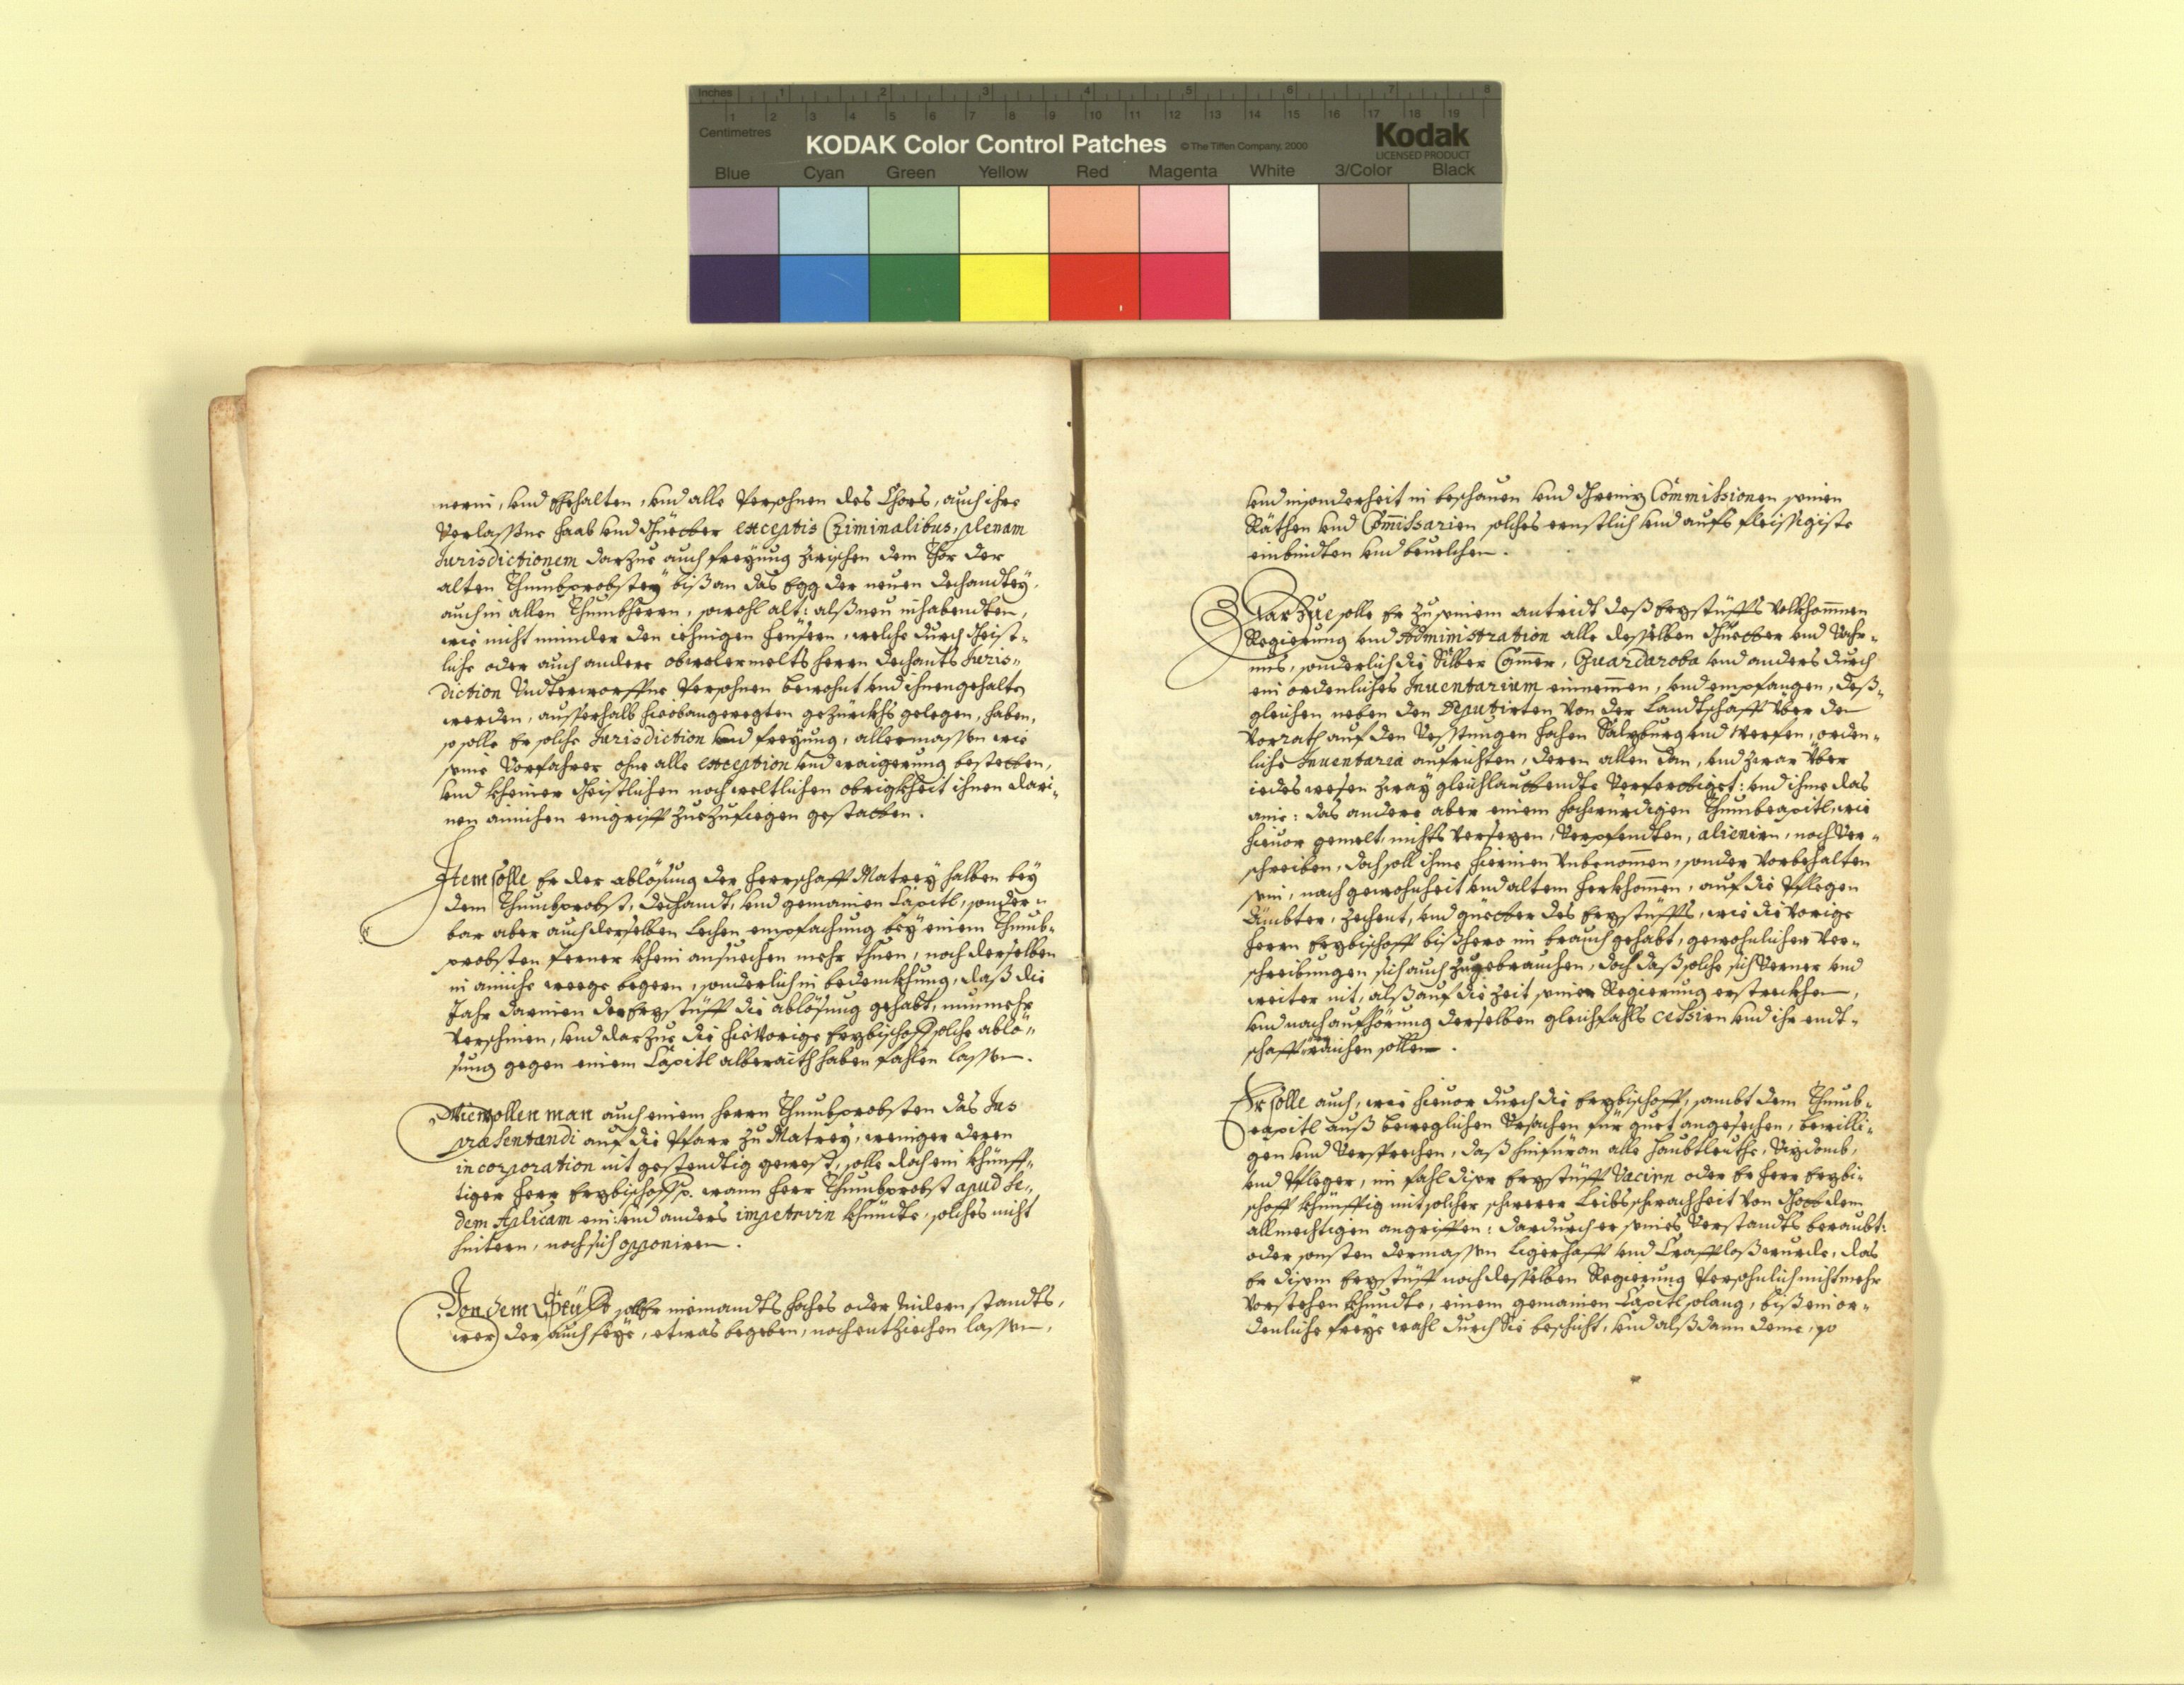 Inches 1 2 3 4 5 6 7 8
1 2 3 4 5 6 7 8 9 10 11 12 13 14 15 16 17 18 19
Centimetres
KODAK Color Control Patches © The Tiffen Company, 2000 Kodak
LICENSED PRODUCT
Blue Cyan Green Yellow Red Magenta White 3/Color Black
nern, vnd Ehehalten, vnd alle Persohnen des Chors, auch ihre
Verlaßne Haab vnd Güetter exceptis Criminalibus, plenam
Jurisdictionem darzue auch freyung zwischen dem Thor der
alten Thumbprobstey biß an das Egg der neuen Dechandtey,
auch in allen Thumbherrn, sowohl alt: alß neu inhabendten,
wie nicht minder den iehnigen Heüsern, welche durch Geist-
liche oder auch andere obuolermelts herrn Dechants Juris-
diction Vndterworffne Persohnen bewohnt vnd ihnengehalten
werden, ausserhalb hieobangeregten gezürckhs gelegen, haben,
so solle Er solche Jurisdiction vnd freyung, allermassen wie
seine Vorfahrer ohne alle exception vnd waigerung bestetten,
vnd kheiner Geistlichen noch weltlichen obrigkheit ihnen dari-
nen ainichen eingriff zuezufiegen gestatten.
Item solle Er der ablösung der Herrschafft Matrey halben bey
dem Thumbprobst, Dechandt, vnd gemainen Capitl, sonder-
bar aber auch derselben Lechen empfachung bey einem Thumb-
probsten ferner khein ansuechen mehr thuen, noch derselben
in ainiche weege begern, sonderlich in bedenckhung, daß die
Jahr darinnen der Erzstüfft die ablösung gehabt, nunmehr
verschinen, vnd darzue die hieuorige Erzbischoff solche ablö-
sung gegen einem Capitl alberaith haben fahlen lassen.
Wiewollen man auch einem Herrn Thumbprobsten das Jus
præsentandi auf die Pfarr zu Matrey, weniger deren
incorporation nit gestendtig gewest, solle doch ein khünff-
tiger Herr Erzbischoff p. wann Herr Thumbprobst apud Se-
dem Aplicam ein: vnd anders impetrirn khundte, solches nicht
hintern, noch sich opponiren.
Von dem Stüfft solle Er niemandts hoches oder Nidern standts,
wer der auch seye, etwas begeben, noch entziechen lassen,
vnd insonderheit in beschauen vnd Gräniz Commissionen seinen
Räthen vnd Comissarien solches ernstlich vnd aufs fleissigiste
einbindten vnd beuelchen.
Darzue solle Er zu seinem antridt deß Erzstüffts Volkhommen
Regierung vnd Administration alle desselben Güetter vnd Vahr-
nus, sonderlich die Silber Camer, Guardaroba vnd anders durch
ein ordenliches Inuentarium einnemen, vnd empfangen, deß-
gleichen neben den Deputirten von der Landtschafft über den
Vorrath auf den Vesstungen Hochen Salzburg vnd Werfen, orden-
liche Inuentaria aufrichten, deren allen dan, vnd zwar über
iedes wesen zway gleichlauttendte Verferttiget: vnd ihme das
aine: das andere aber einem hochwürdigen Thumbcapitl, wie
hieuor gemelt, nichts versezen, Verpfendten, alienirn, noch Ver-
schreiben, doch soll ihme hierinen Vnbenomen, sonder vorbehalten
sein, nach gewohnheit vnd altem herkhomen, auf die Pflegen
Ämbter, Zechent, vnd güetter des Erzstüffts, wie die vorige
Herrn Erzbischoff bißhero im brauch gehabt, gewohnlicher Ver-
schreibungen sich auch zugebrauchen, doch daß solche sich Verner vnd
weiter nit, alß auf die Zeit seiner Regierung erstreckhen,
vnd nach aufhörung derselben gleichfahls cessirn vnd ihr endt-
schafft raichen sollen.
Er solle auch, wie hieuor durch die Erzbischoff, sambt dem Thumb-
capitl auß beweglichen Vrsachen für guet angesechen, bewilli-
gen vnd Versprechen, daß hinfüran alle Haubtleuthe, Vizdomb,
vnd Pfleger, im fahl diser Erzstüfft Vacirn oder Er Herr Erzbi-
schoff khünfftig mit solcher schwerer Leibs schwachheit von Gott dem
allmechtigen angriffen: dardurch er seines Verstandts beraubt:
oder sonsten dermassen ligerhafft vnd Crafftloß wurde, das
Er disem Erzstüfft noch desselben Regierung Persohnlich nicht mehr
vorstehen khundte, einem gemainen Capitl solang, biß ein or-
denliche freye wahl durch Sie beschicht, vnd alß dann deme, so